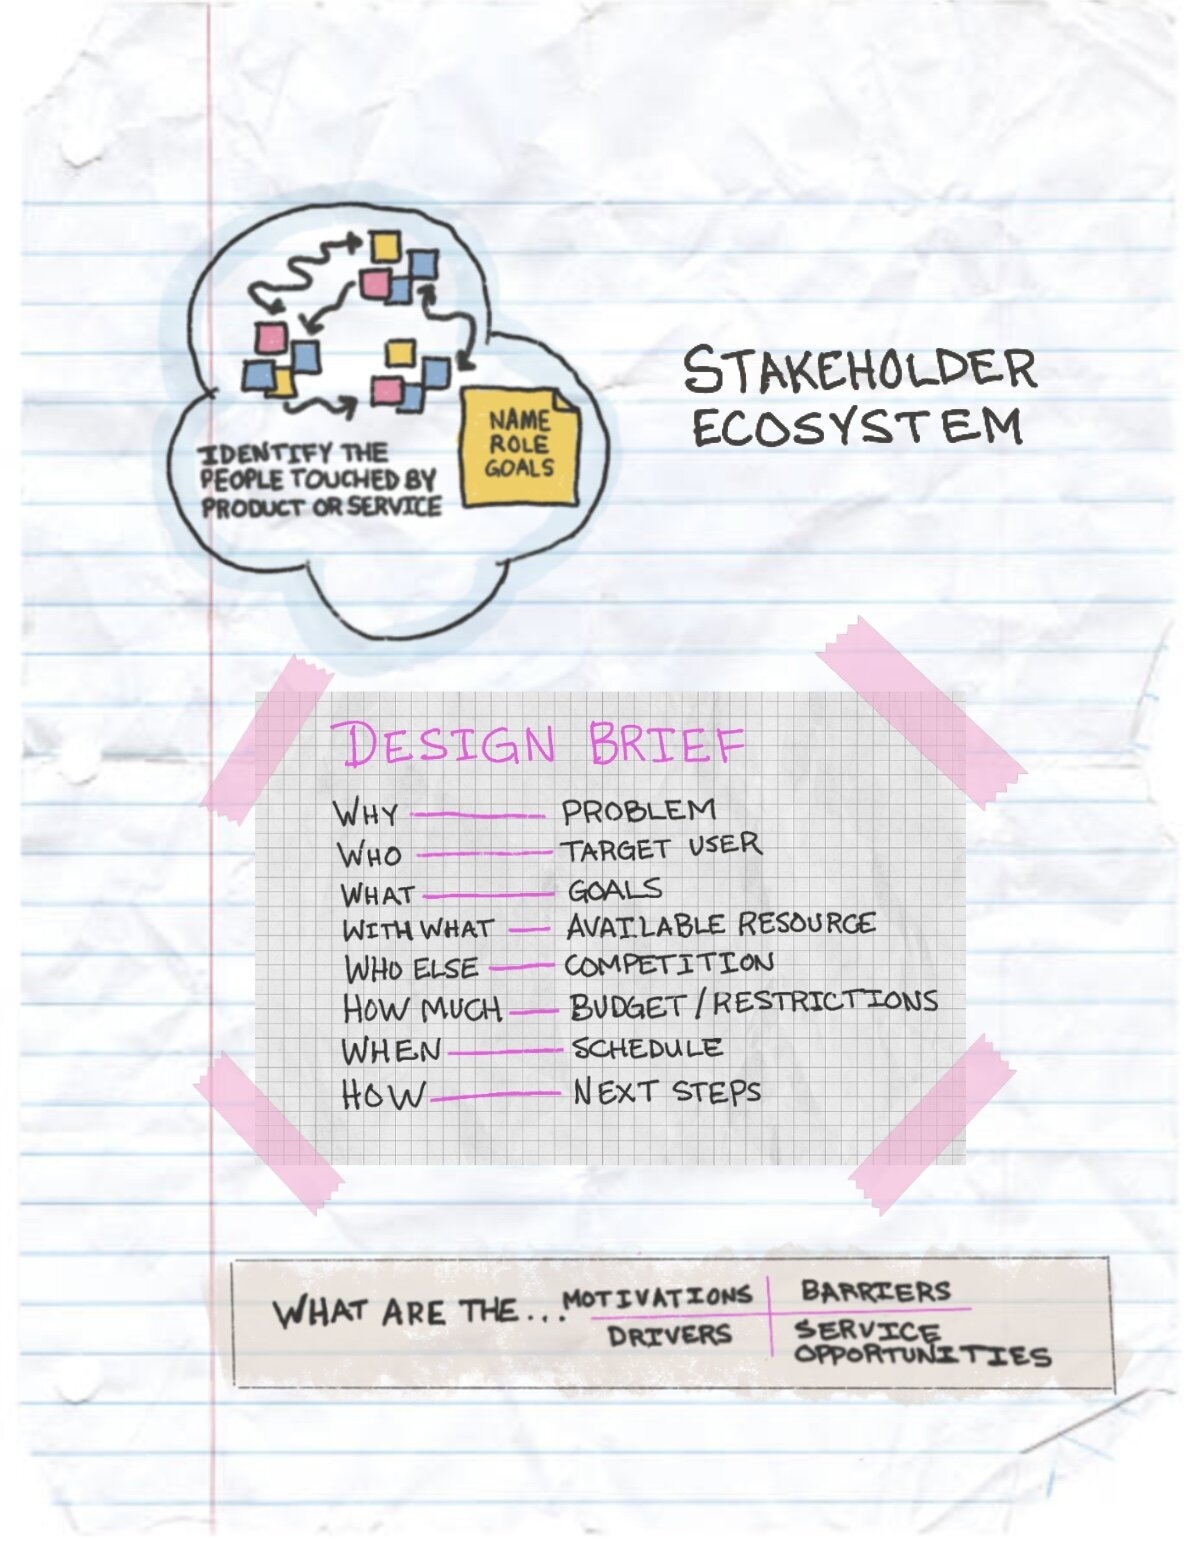 STAKEHOLDER
ECOSYSTEM
NAME
ROLE
GOALS
IDENTIFY THE
PEOPLE TOUCHED BY
PRODUCT OR SERVICE
DESIGN BRIEF
WHY — PROBLEM
WHO — TARGET USER
WHAT — GOALS
WITH WHAT — AVAILABLE RESOURCE
WHO ELSE — COMPETITION
HOW MUCH — BUDGET / RESTRICTIONS
WHEN — SCHEDULE
HOW — NEXT STEPS
WHAT ARE THE...
MOTIVATIONS
BARRIERS
DRIVERS
SERVICE
OPPORTUNITIES